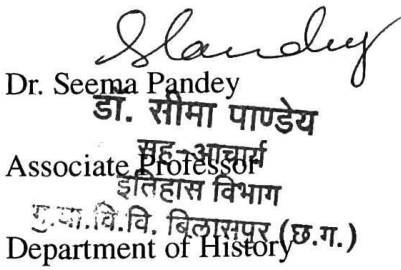 Dr. Seema Pandey
डॉ. सीमा पाण्डेय
सह-आचार्य
Associate Professor
इतिहास विभाग
गु.घा.वि.वि. बिलासपुर (छ.ग.)
Department of History